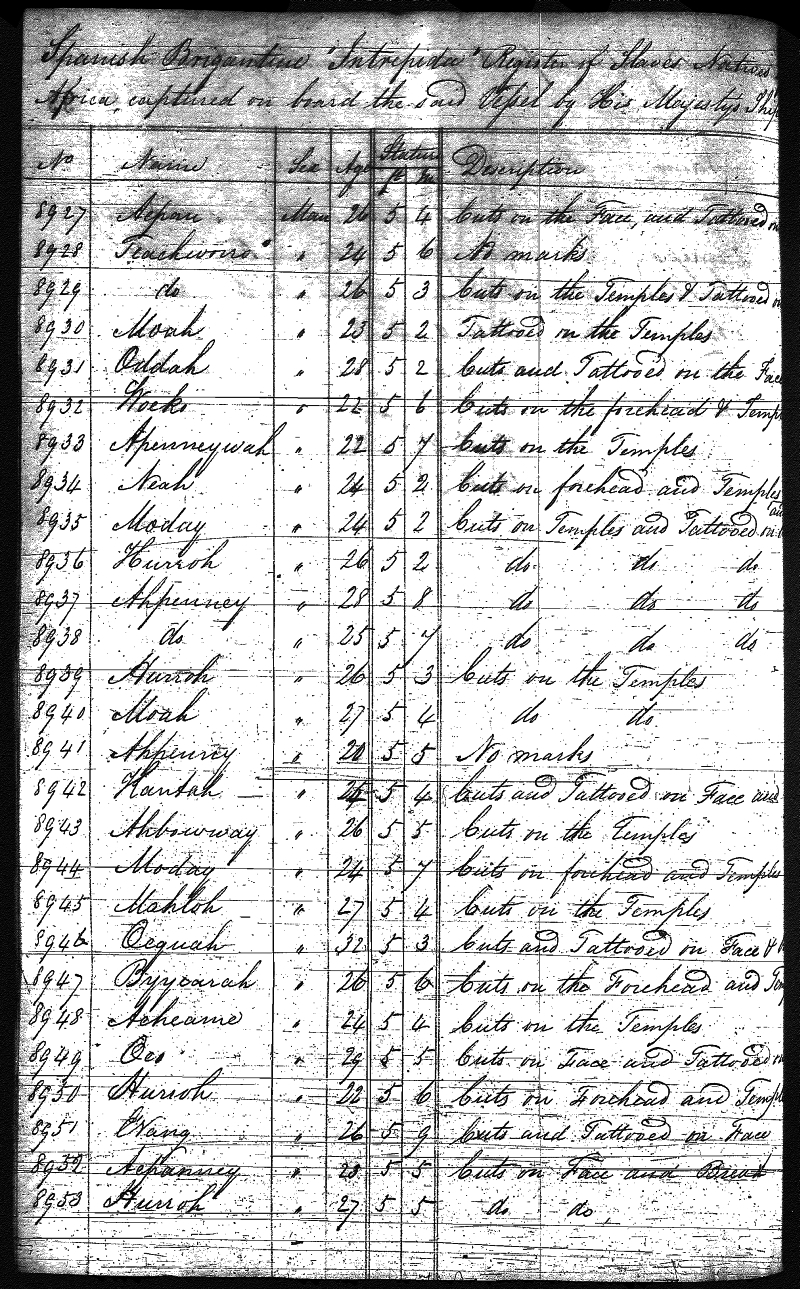 Spanish Brigantine "Intrepida" Register of Slaves Natives
Africa, captured on board the said Vessel by His Majesty's Ship
No Name Sex Age Stature Description
ft In
8927 Man 26 5 4 Cuts on the Face, and Tattooed on
8928 " 24 5 6 No marks
8929 do " 26 5 3 Cuts on the Temples & Tattooed
8930 Moah " 23 5 2 Tattooed on the Temples
8931 Oddah " 28 5 2 Cuts and Tattooed on the Face
8932 Wocko " 22 5 6 Cuts on the forehead & Temp
8933 Apenneywah " 22 5 7 Cuts on the Temples
8934 Neah " 24 5 2 Cuts on forehead and Temples
8935 Moday " 24 5 2 Cuts on Temples and Tattooed on
8936 Hurroh " 26 5 2 do do do
8937 Ahpenney " 28 5 8 do do do
8938 do " 25 5 7 do do do
8939 Hurroh " 26 5 3 Cuts on the Temples
8940 Moah " 27 5 4 do do
8941 Ahpenney " 20 5 5 No marks
8942 Kantah " 5 4 Cuts and Tattooed on Face and
8943 Ahbowway " 26 5 5 Cuts on the Temples
8944 Moday " 24 5 7 Cuts on forehead and Temples
8945 Mahloh " 27 5 4 Cuts on the Temples
8946 Oequah " 32 5 3 Cuts and Tattooed on Face &
8947 Byyearah " 26 5 6 Cuts on the Forehead and Tem
8948 Acheame " 24 5 4 Cuts on the Temples
8949 Oco " 29 5 5 Cuts on Face and Tattooed
8950 Hurroh " 22 5 6 Cuts on Forehead and Temp
8951 " 26 5 9 Cuts and Tattooed on Face
8952 Achanney " 28 5 5 Cuts on Face and Breast
8953 Hurroh " 27 5 5 do do